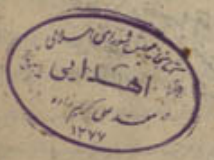 کتابخانه مجلس شورای اسلامی
اهدایی
کریم زاده
۱۲۷۷